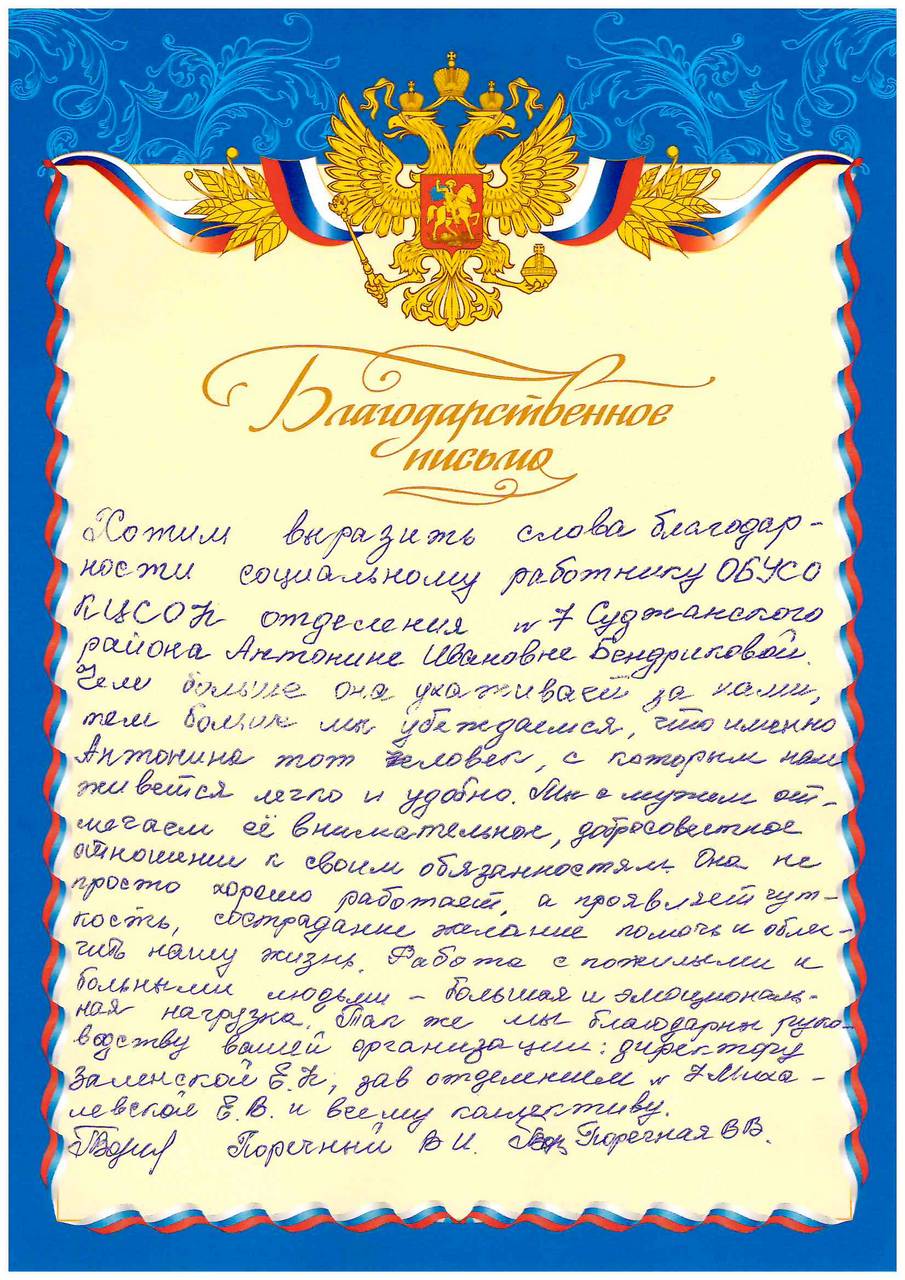 Благодарственное
письмо
Хотим выразить слова благодар-
ности социальному работнику ОБУСО
КЦСОН отделения №7 Суджанского
района Антонине Ивановне Бендриковой.
Чем больше она ухаживает за нами,
тем больше мы убеждаемся, что именно
Антонина тот человек, с которым нам
живется легко и удобно. Мы с мужем от-
мечаем её внимательное, добросовестное
отношении к своим обязанностям. Она не
просто хорошо работает, а проявляет чут-
кость, сострадание желание помочь и облег-
чить нашу жизнь. Работа с пожилыми и
больными людьми – большая и эмоциональ-
ная нагрузка. Так же мы благодарны руко-
водству вашей организации: директору
Заленской Е.Н, зав отделением №7 Миха-
левской Е.В. и всему коллективу.
Поречный В И. Поречная В В.